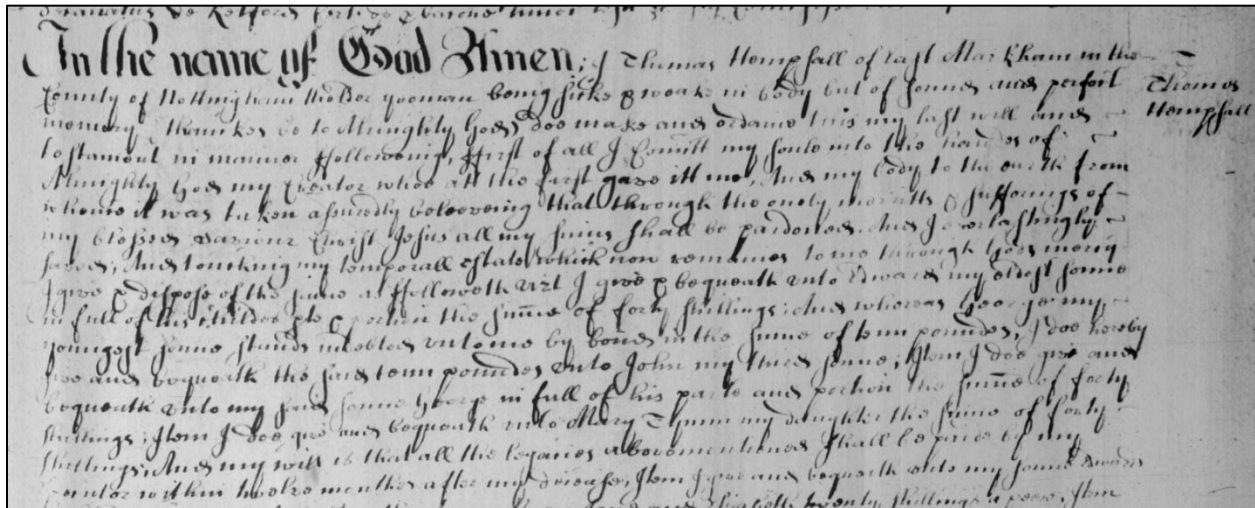 de Retford
In the name of God Amen; I Thomas Hempsall of East Markham in the
County of Nottingham the elder yeoman being sicke & weake in body but of sound and perfect
memory, thankes be to Almighty God, doe make and ordaine this my last will and
testament in manner ffolloweing, ffirst of all I Comitt my soule into the handes of
Almighty God my Creator whoe att the first gave itt me, And my body to the earth from
whence it was taken assuredly beleeveing that through the onely meritts & sufferings of
my blessed Saviour Christ Jesus all my sinns shall be pardoned And I everlastingly
saved; And touching my temporall estate which now remaines to me through Gods mercy
I give & dispose of the same as ffolloweth vizt I give & bequeath unto Edward my eldest sonne
in full of his childes pte & portion the sume of forty shillings; And whereas George my
youngest sonne stands indebted unto me by bond in the sume of tenn poundes, I doe hereby
give and bequeath the said tenn poundes unto John my third sonne; Item I doe give and
bequeath unto my said sonne George in full of his parte and portion the sume of forty
shillings; Item I doe give and bequeath unto Mary my daughter the sume of forty
shillings; And my will is that all the legacies abovementioned shall be paid by my
within twelve monthes after my decease, Item I give and bequeath unto my sonne Edwards
and Elizabeth twenty shillings a peece, Item
Thomas
Hempsall